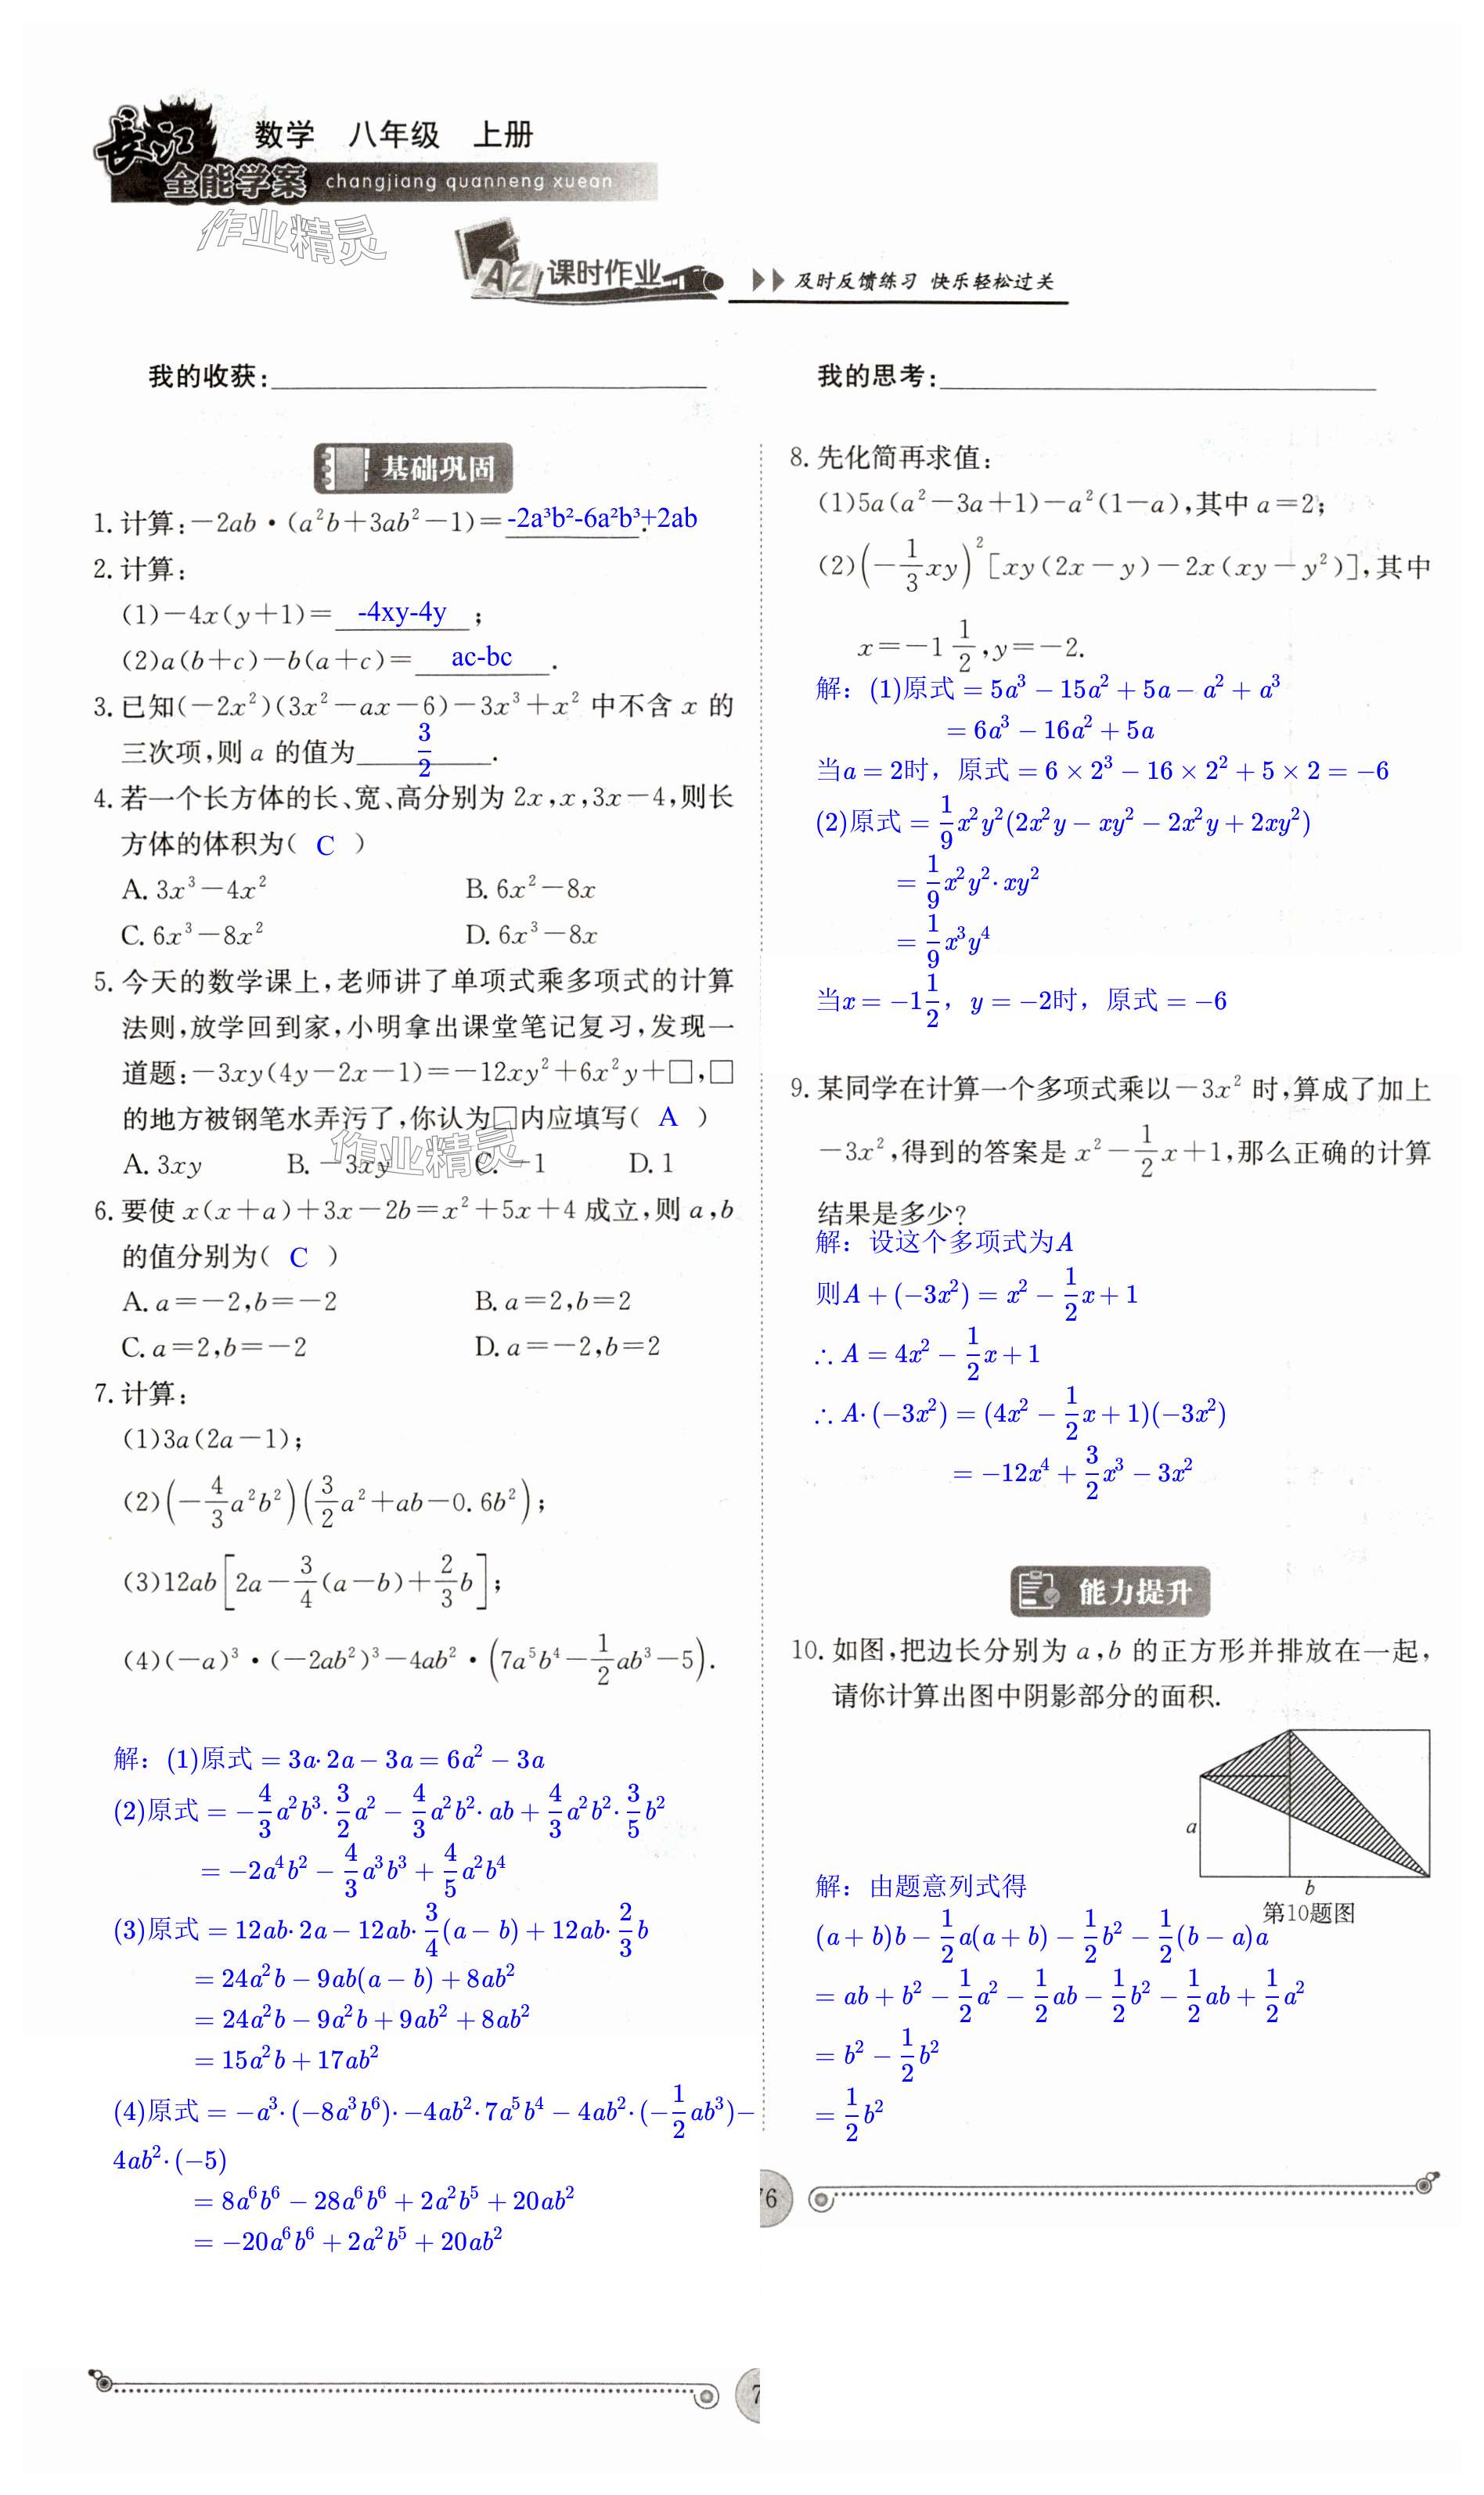 长江
数学 八年级 上册
全能学案 changjiang quanneng xuean
作业精灵
AZ 课时作业 及时反馈练习 快乐轻松过关
我的收获:
基础巩固
1. 计算:-2ab·(a²b+3ab²-1)=-2a³b²-6a²b³+2ab.
2. 计算:
(1)-4x(y+1)= -4xy-4y ;
(2)a(b+c)-b(a+c)= ac-bc .
3. 已知(-2x²)(3x²-ax-6)-3x³+x² 中不含 x 的
三次项,则 a 的值为 3/2 .
4. 若一个长方体的长、宽、高分别为 2x,x,3x-4,则长
方体的体积为( C )
A. 3x³-4x² B. 6x²-8x
C. 6x³-8x² D. 6x³-8x
5. 今天的数学课上,老师讲了单项式乘多项式的计算
法则,放学回到家,小明拿出课堂笔记复习,发现一
道题:-3xy(4y-2x-1)=-12xy²+6x²y+□,□
的地方被钢笔水弄污了,你认为□内应填写( A )
作业精灵
A. 3xy B. -3xy C. -1 D. 1
6. 要使 x(x+a)+3x-2b=x²+5x+4 成立,则 a,b
的值分别为( C )
A. a=-2,b=-2 B. a=2,b=2
C. a=2,b=-2 D. a=-2,b=2
7. 计算:
(1)3a(2a-1);
(2)(-4/3a²b²)(3/2a²+ab-0.6b²);
(3)12ab[2a-3/4(a-b)+2/3b];
(4)(-a)³·(-2ab²)³-4ab²·(7a⁵b⁴-1/2ab³-5).
解:(1)原式=3a·2a-3a=6a²-3a
(2)原式=-4/3a²b³·3/2a²-4/3a²b²·ab+4/3a²b²·3/5b²
=-2a⁴b²-4/3a³b³+4/5a²b⁴
(3)原式=12ab·2a-12ab·3/4(a-b)+12ab·2/3b
=24a²b-9ab(a-b)+8ab²
=24a²b-9a²b+9ab²+8ab²
=15a²b+17ab²
(4)原式=-a³·(-8a³b⁶)·-4ab²·7a⁵b⁴-4ab²·(-1/2ab³)-
4ab²·(-5)
=8a⁶b⁶-28a⁶b⁶+2a²b⁵+20ab²
=-20a⁶b⁶+2a²b⁵+20ab²
7
我的思考:
8. 先化简再求值:
(1)5a(a²-3a+1)-a²(1-a),其中 a=2;
(2)(-1/3xy)²[xy(2x-y)-2x(xy-y²)],其中
x=-1 1/2,y=-2.
解:(1)原式=5a³-15a²+5a-a²+a³
=6a³-16a²+5a
当a=2时,原式=6×2³-16×2²+5×2=-6
(2)原式=1/9x²y²(2x²y-xy²-2x²y+2xy²)
=1/9x²y²·xy²
=1/9x³y⁴
当x=-1 1/2,y=-2时,原式=-6
9. 某同学在计算一个多项式乘以-3x² 时,算成了加上
-3x²,得到的答案是 x²-1/2x+1,那么正确的计算
结果是多少?
解:设这个多项式为A
则A+(-3x²)=x²-1/2x+1
∴A=4x²-1/2x+1
∴A·(-3x²)=(4x²-1/2x+1)(-3x²)
=-12x⁴+3/2x³-3x²
能力提升
10. 如图,把边长分别为 a,b 的正方形并排放在一起,
请你计算出图中阴影部分的面积.
a
b
第10题图
解:由题意列式得
(a+b)b-1/2a(a+b)-1/2b²-1/2(b-a)a
=ab+b²-1/2a²-1/2ab-1/2b²-1/2ab+1/2a²
=b²-1/2b²
=1/2b²
76